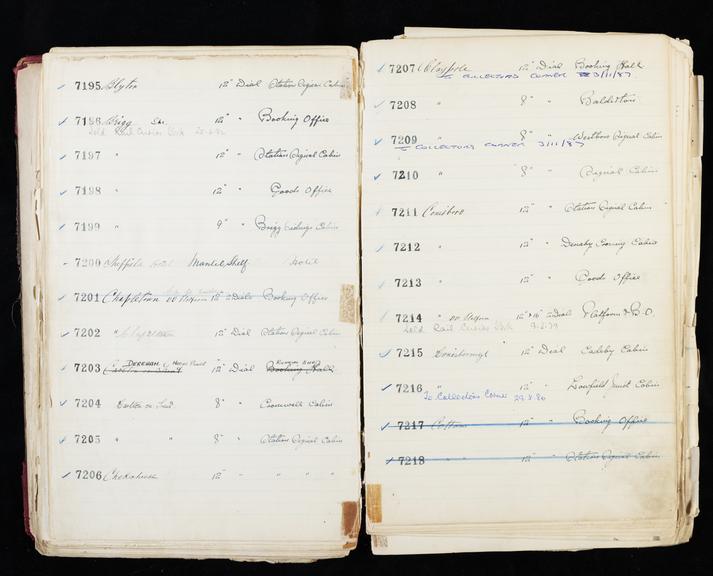 7195 Blyton 12" Dial Station Signal Cabin
7196 Brigg 12" " Booking Office
Sold Rail Curios York
7197 " 12" " Station Signal Cabin
7198 " 12" " Goods Office
7199 " 9" " Brigg Sidings Cabin
7200 Sheffield Hotel Mantel Shelf Hotel
7201 Chapeltown 12" Dial Booking Office
7202 " 12" Dial Station Signal Cabin
DEREHAM
7203 12" Dial Booking Hall
7204 8" Cromwell Cabin
7205 " " 8" Station Signal Cabin
7206 12" " " " "
7207 Claypole 12" Dial Booking Hall
TO COLLECTORS CORNER 3/11/87
7208 " 8" " Balderton
7209 " 8" " Westboro Signal Cabin
TO COLLECTORS CORNER 3/11/87
7210 " 8" " Signal Cabin
7211 Conisboro 12" " Station Signal Cabin
7212 " 12" " Denaby Crossing Cabin
7213 " 12" " Goods Office
7214 " Dial Platform & B.O.
Sold Rail Curios York
7215 Conisborough 12" Dial Cadeby Cabin
7216 " 12" " Lowfield Junct Cabin
To Collectors Corner 29.8.80
7217 12" " Booking Office
7218 " " 12" " Station Signal Cabin